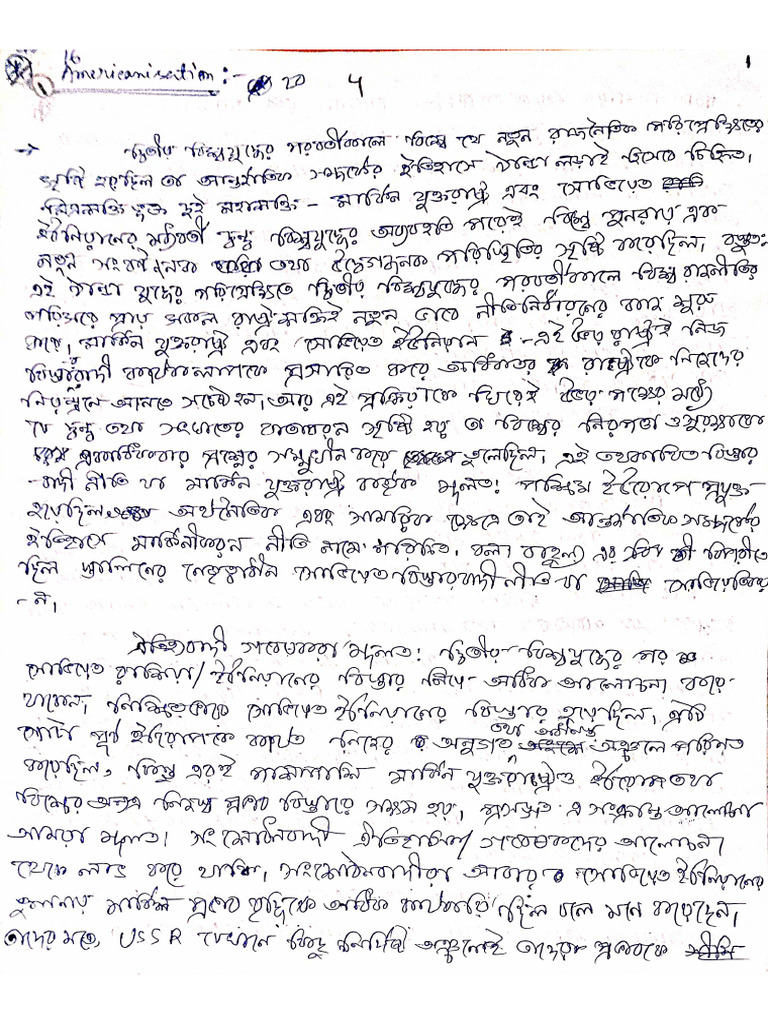 16 1
① Americanisation :- 20 4
→ দ্বিতীয় বিশ্বযুদ্ধের পরবর্তীকালে বিশ্বে যে নতুন রাজনৈতিক পরিপ্রেক্ষিতের
সৃষ্টি হয়েছিল তা আন্তর্জাতিক সম্পর্কের ইতিহাসে ঠান্ডা লড়াই হিসেবে চিহ্নিত,
দুই মহাশক্তি - মার্কিন যুক্তরাষ্ট্র এবং সোভিয়েত
ইউনিয়নের মধ্যবর্তী দ্বন্দ্ব বিশ্বযুদ্ধের অব্যবহতি পরেই বিশ্বে পুনরায় এক
নতুন তথা উদ্বেগজনক পরিস্থিতির সৃষ্টি করেছিল, বস্তুত:
এই ঠান্ডা যুদ্ধের পরিপ্রেক্ষিতে দ্বিতীয় বিশ্বযুদ্ধের পরবর্তীকালে বিশ্ব রাজনীতির
প্রায় সকল নতুন ভাবে নীতিনির্ধারনের কাজ শুরু
করে, মার্কিন যুক্তরাষ্ট্র এবং সোভিয়েত ইউনিয়ন - এই উভয় রাষ্ট্রই নিজ
বিস্তারবাদী কার্যকলাপকে প্রসারিত করে অধিকতর রাষ্ট্রকে নিজেদের
নিয়ন্ত্রনে আনতে সচেষ্ট হন, আর এই প্রক্রিয়াকে ঘিরেই উভয় পক্ষের মধ্যে
যে দ্বন্দ্ব তথা সংঘাতের বাতাবরন সৃষ্টি হয় তা বিশ্বের নিরপত্তা ও সুরক্ষাকে
একাধিকবার প্রশ্নের সম্মুখীন করে তুলেছিল, এই তথাকথিত বিস্তার
-বাদী নীতি যা মার্কিন যুক্তরাষ্ট্র কর্তৃক মূলত: পশ্চিম ইউরোপে প্রযুক্ত
হয়েছিল অর্থনৈতিক এবং সামরিক ক্ষেত্রে তাই আন্তর্জাতিক সম্পর্কের
ইতিহাসে মার্কিনীকরন নীতি নামে পরিচিত, বলা বাহুল্য এর বিপরীতে
ছিল স্তালিনের নেতৃত্বাধীন সোভিয়েত বিস্তারবাদী নীতি যা সোভিয়েতিকর
- ন,
ঐতিহ্যবাদী গবেষকরা মূলত: দ্বিতীয় বিশ্বযুদ্ধের পর
সোভিয়েত রাশিয়া/ ইউনিয়নের বিস্তার নিয়ে অধিক আলোচনা করে
থাকেন, নিশ্চিতভাবে সোভিয়েত ইউনিয়নের বিস্তার হয়েছিল, এটি
গোটা পূর্ব ইউরোপকে কার্যত নিজের অনুগত তথা অধীনস্ত অঞ্চলে পরিণত
করেছিল, কিন্তু এরই পাশাপাশি মার্কিন যুক্তরাষ্ট্রও ইউরোপ তথা
বিশ্বের অন্যত্র নিজস্ব প্রভাব বিস্তারে সক্ষম হয়, প্রসঙ্গত এ সংক্রান্ত আলোচনা
আমরা মূলত: সংশোধনবাদী ঐতিহাসিক/ গবেষকদের আলোচনা
থেকে লাভ করে থাকি, সংশোধনবাদীরা আবার সোভিয়েত ইউনিয়নের
তুলনায় মার্কিন প্রভাব বৃদ্ধিকে অধিক কার্যকারি ছিল বলে মনে করেছেন,
তাদের মতে, USSR যেখানে কিছু নির্দিষ্ট অঞ্চলেই তাদের প্রভাবকে